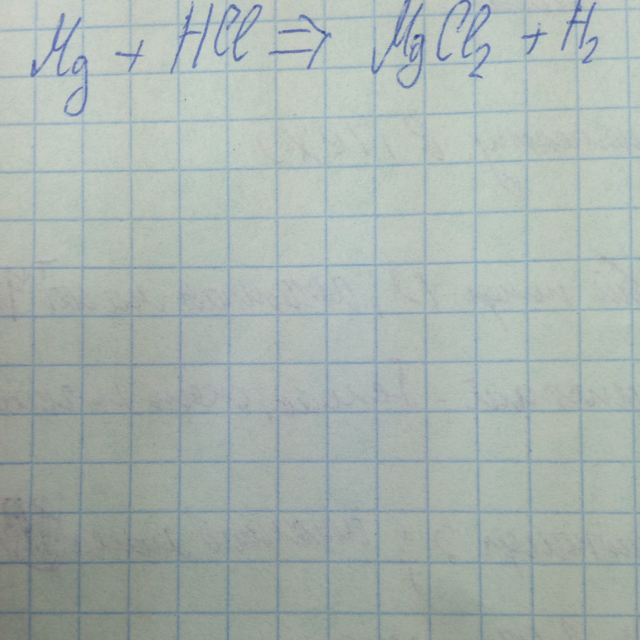 Mg + HCl => MgCl₂ + H₂